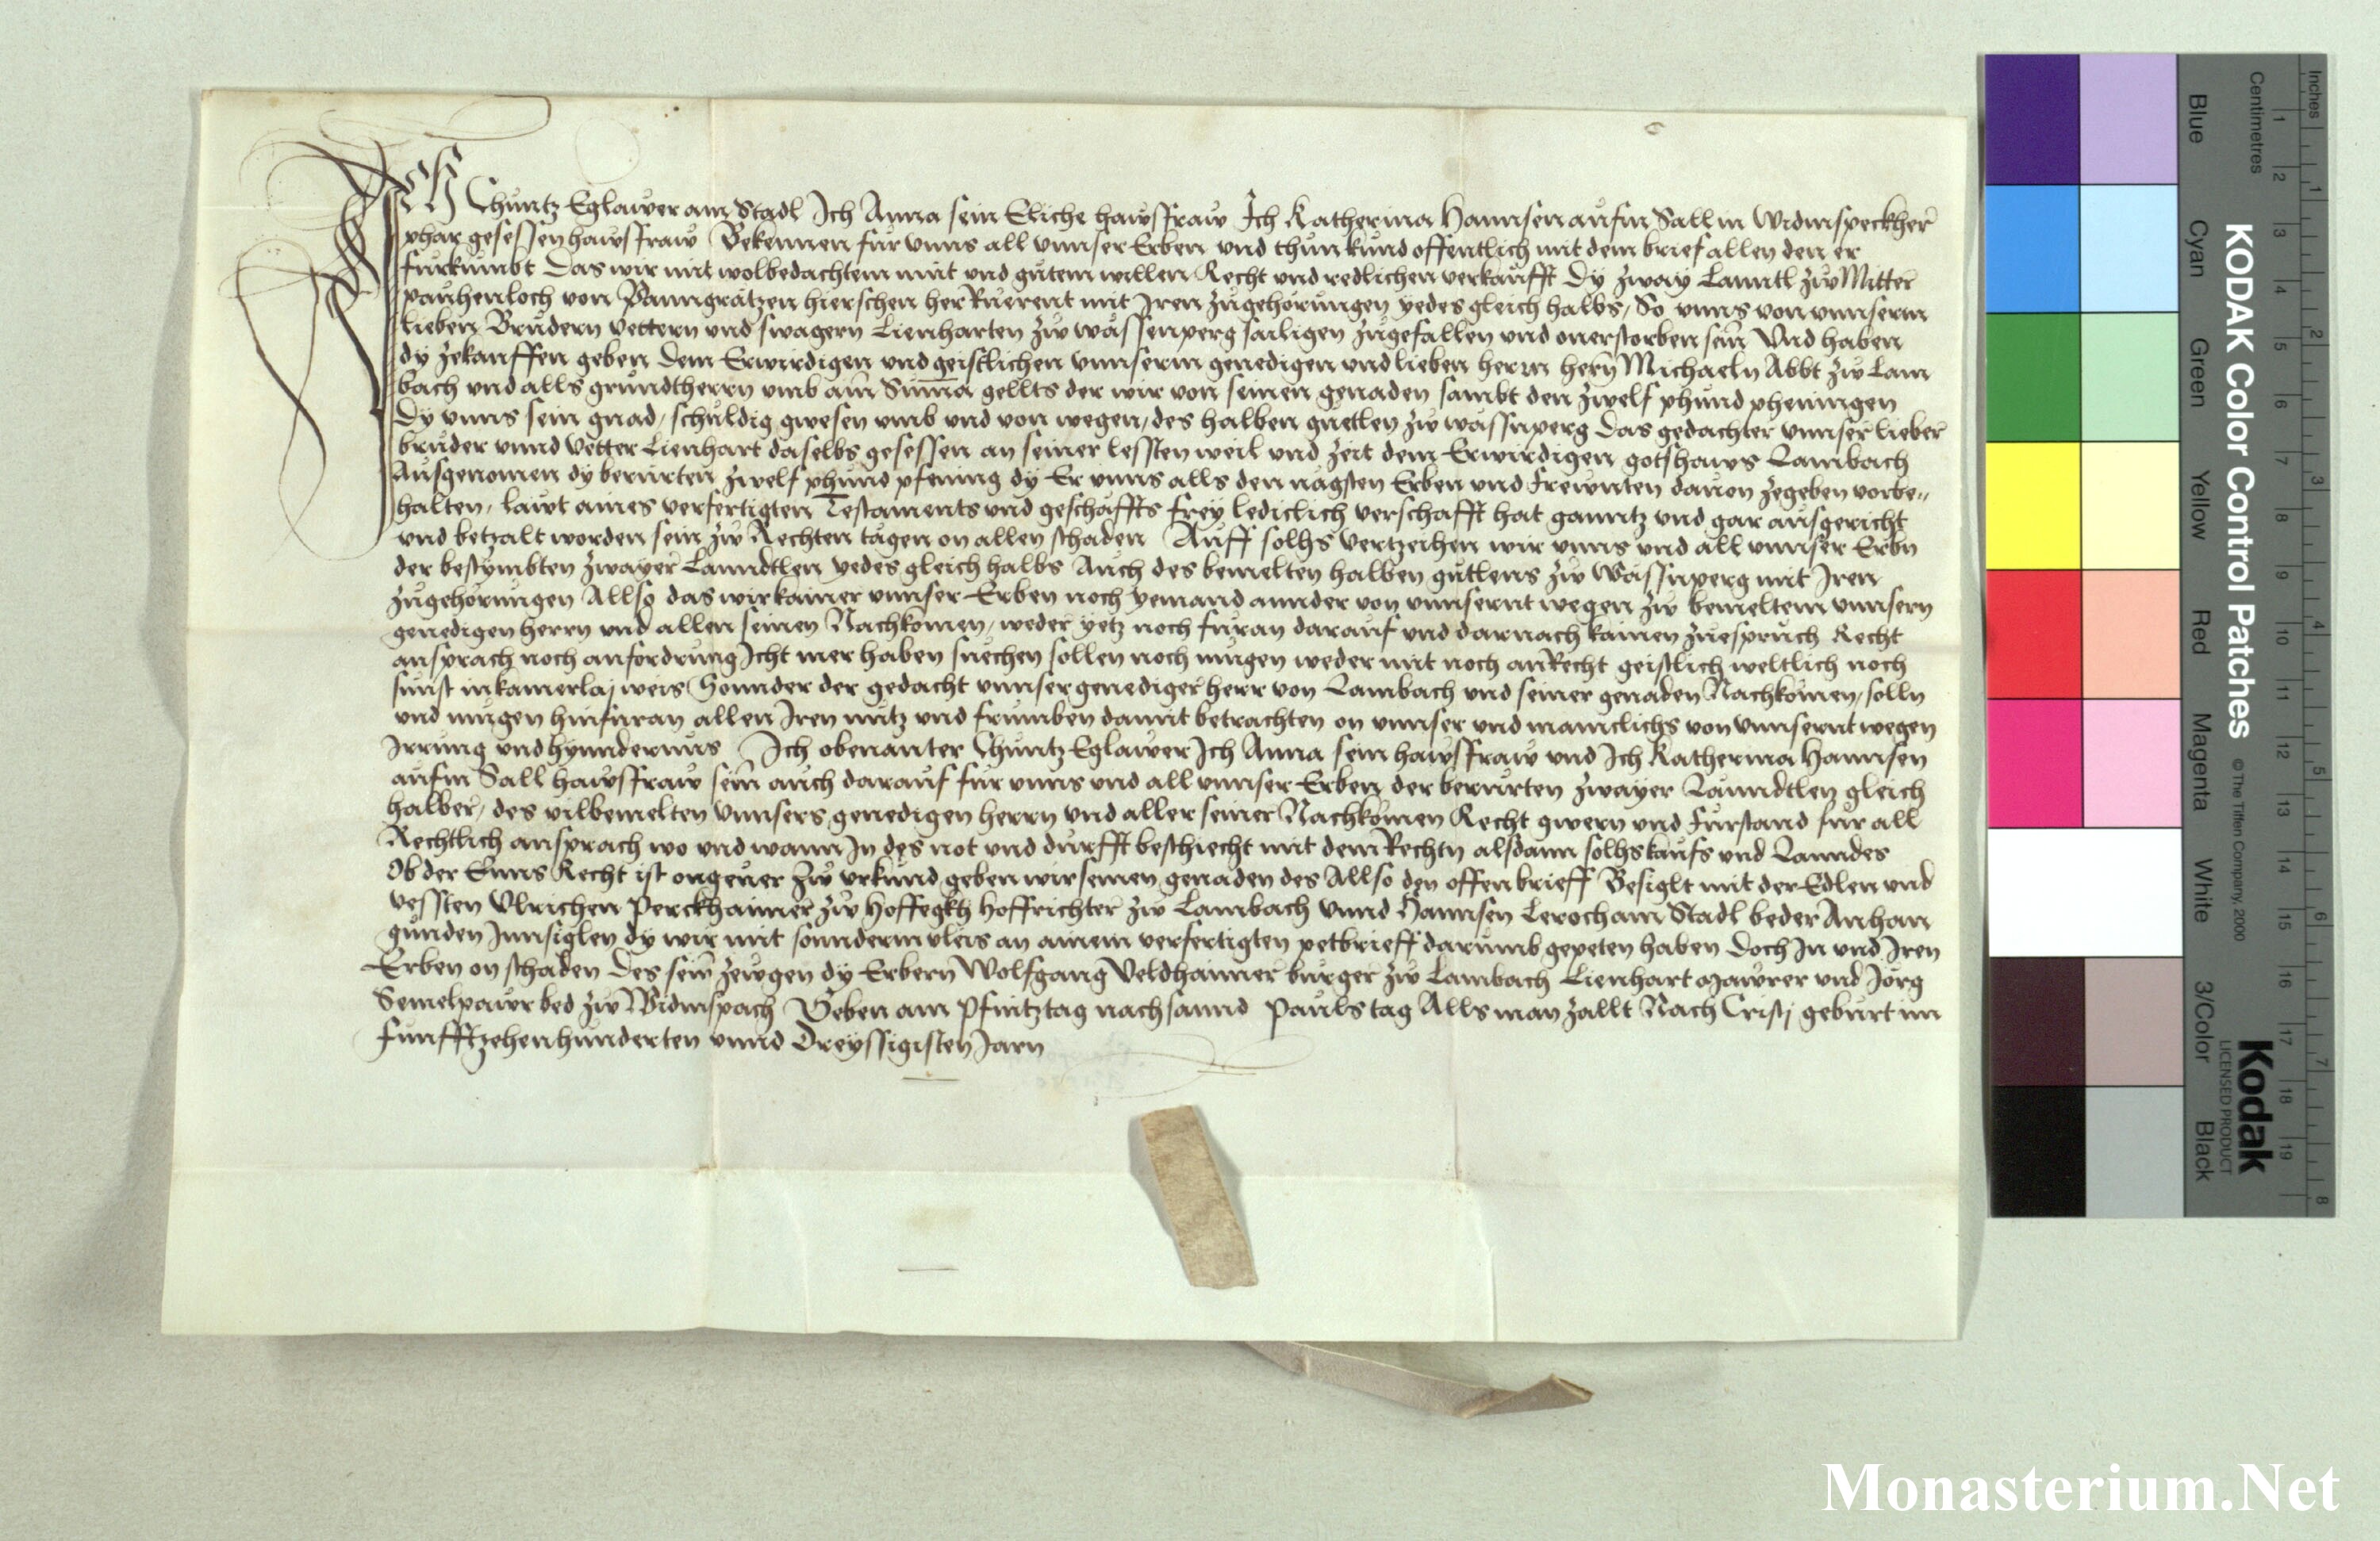 Ich Chuntz Eglawer am Stadl Ich Anna sein Eliche hawsfraw Ich Katherina Hannsen aufm Sall in Widmspeckher
phar gesessen hawsfraw Bekennen fur vnns all vnnser Erben vnd thun kund offentlich mit dem brief allen den er
furkumbt Das wir mit wolbedachtem mut vnd gutem willen Recht vnd redlichen verkaufft dy zway Lanntl zw Mitter
pauhenloch von Panngrätzen hierschen her Ruerent mit Iren zugehorungen yedes gleich halbs, So vnns von vnnserm
lieben Brudern vettern vnd swagern Lienharten zw wässenperg säiligen zugefallen vnd onerstorben sein Vnd haben
dy zekauffen geben dem Erwirdigen vnd geistlichen vnnserm genedigen vnd lieben herrn hern Michaeln Abbt zw Lam
bach vnd alls grundtherrn vmb ain Suma gellts der wir von seinen genaden sambt den zwelf phund pheningen
Dy vnns sein gnad, schuldig gwesen vmb vnd von wegen, des halben guetlen zw wässnperg Das gedachter vnnser lieber
bruder vnnd vetter Lienhart daselbs gesessen an seiner lessten weil vnd zeit dem Erwirdigen gotshaws Lambach
Ausgenomen dy berurten zwelf phund pfening dy Er vnns alls den nagsten Erben vnd Frewnten dauon zegeben vorbe,,
halten, lawt aines verfertigten Testaments vnd geschaffts frey lediclich verschafft hat ganntz vnd gar ausgericht
vnd betzalt worden sein zw Rechten tägen on allen schaden Auff solhs vertzeihen wir vnns vnd all vnnser Erbn
der bestymbten zwayer Lanndtlen yedes gleich halbs Auch des bemelten halben gutlens zw Wässnperg mit Iren
zugehorungen Allso das wir kainer vnnser Erben noch yemand annder von vnnsernt wegen zw bemeltem vnnsern
genedigen herrn vnd allen seinen Nachkomen, weder yetz noch furan darauf vnd darnach kainen zuespruch Recht
ansprach noch anfordrung Icht mer haben suechen sollen noch mugen weder mit noch an Recht geistlich weltlich noch
sunst in kainerlaj weis Sonnder der gedacht vnnser genediger herr von Lambach vnd seiner genaden Nachkomen, solln
vnd mugen hinfuran allen Iren nutz vnd frumben damit betrachten on vnnser vnd mainclichs von vnnsernt wegen
Irrung vnd hynndernus Ich obenanter Chuntz Eglawer Ich Anna sein hawsfraw vnd Ich Katherina Hannsen
aufm Sall hawsfraw sein auch darauf fur vnns vnd all vnnser Erben der berurten zwayer Lanndtlen gleich
halber, des vilbemelten vnnsers genedigen herrn vnd aller seiner Nachkomen Recht gwern vnd Furstand fur all
Rechtlich ansprach wo vnd wann In des not vnd durfft beschiecht mit dem Rechtn alsdann solhs kaufs vnd Lanndes
Ob der Enns Recht ist ongeuer zw vrkund geben wir seinen genaden des Allso den offen brieff Besiglt mit der Edlen vnd
vessten Vlrichen Perckhaimer zw Hoffegkh Hoffrichter zw Lambach vnnd Hannsen Leroch am Stadl beder Anhan
gunden Innsiglen dy wir mit sonnderm vleis an ainem verfertigten petbrieff darumb gepeten haben Doch In vnd Iren
Erben on schaden Des sein zewgen dy Erbern Wolfgang Veldhaimer burger zw Lambach Lienhart Mawrer vnd Jorg
Semelpawr bed zw Widmspach Geben am Pfintztag nach sannd Pauls tag Alls man zallt Nach Cristj geburt im
funfftzehenhunderten vnnd Dreyssigisten Jarn
KODAK Color Control Patches
© The Tiffen Company, 2000
Kodak
LICENSED PRODUCT
Blue Cyan Green Yellow Red Magenta White 3/Color Black
Inches 1 2 3 4 5 6 7 8
Centimetres 1 2 3 4 5 6 7 8 9 10 11 12 13 14 15 16 17 18 19
Monasterium.Net